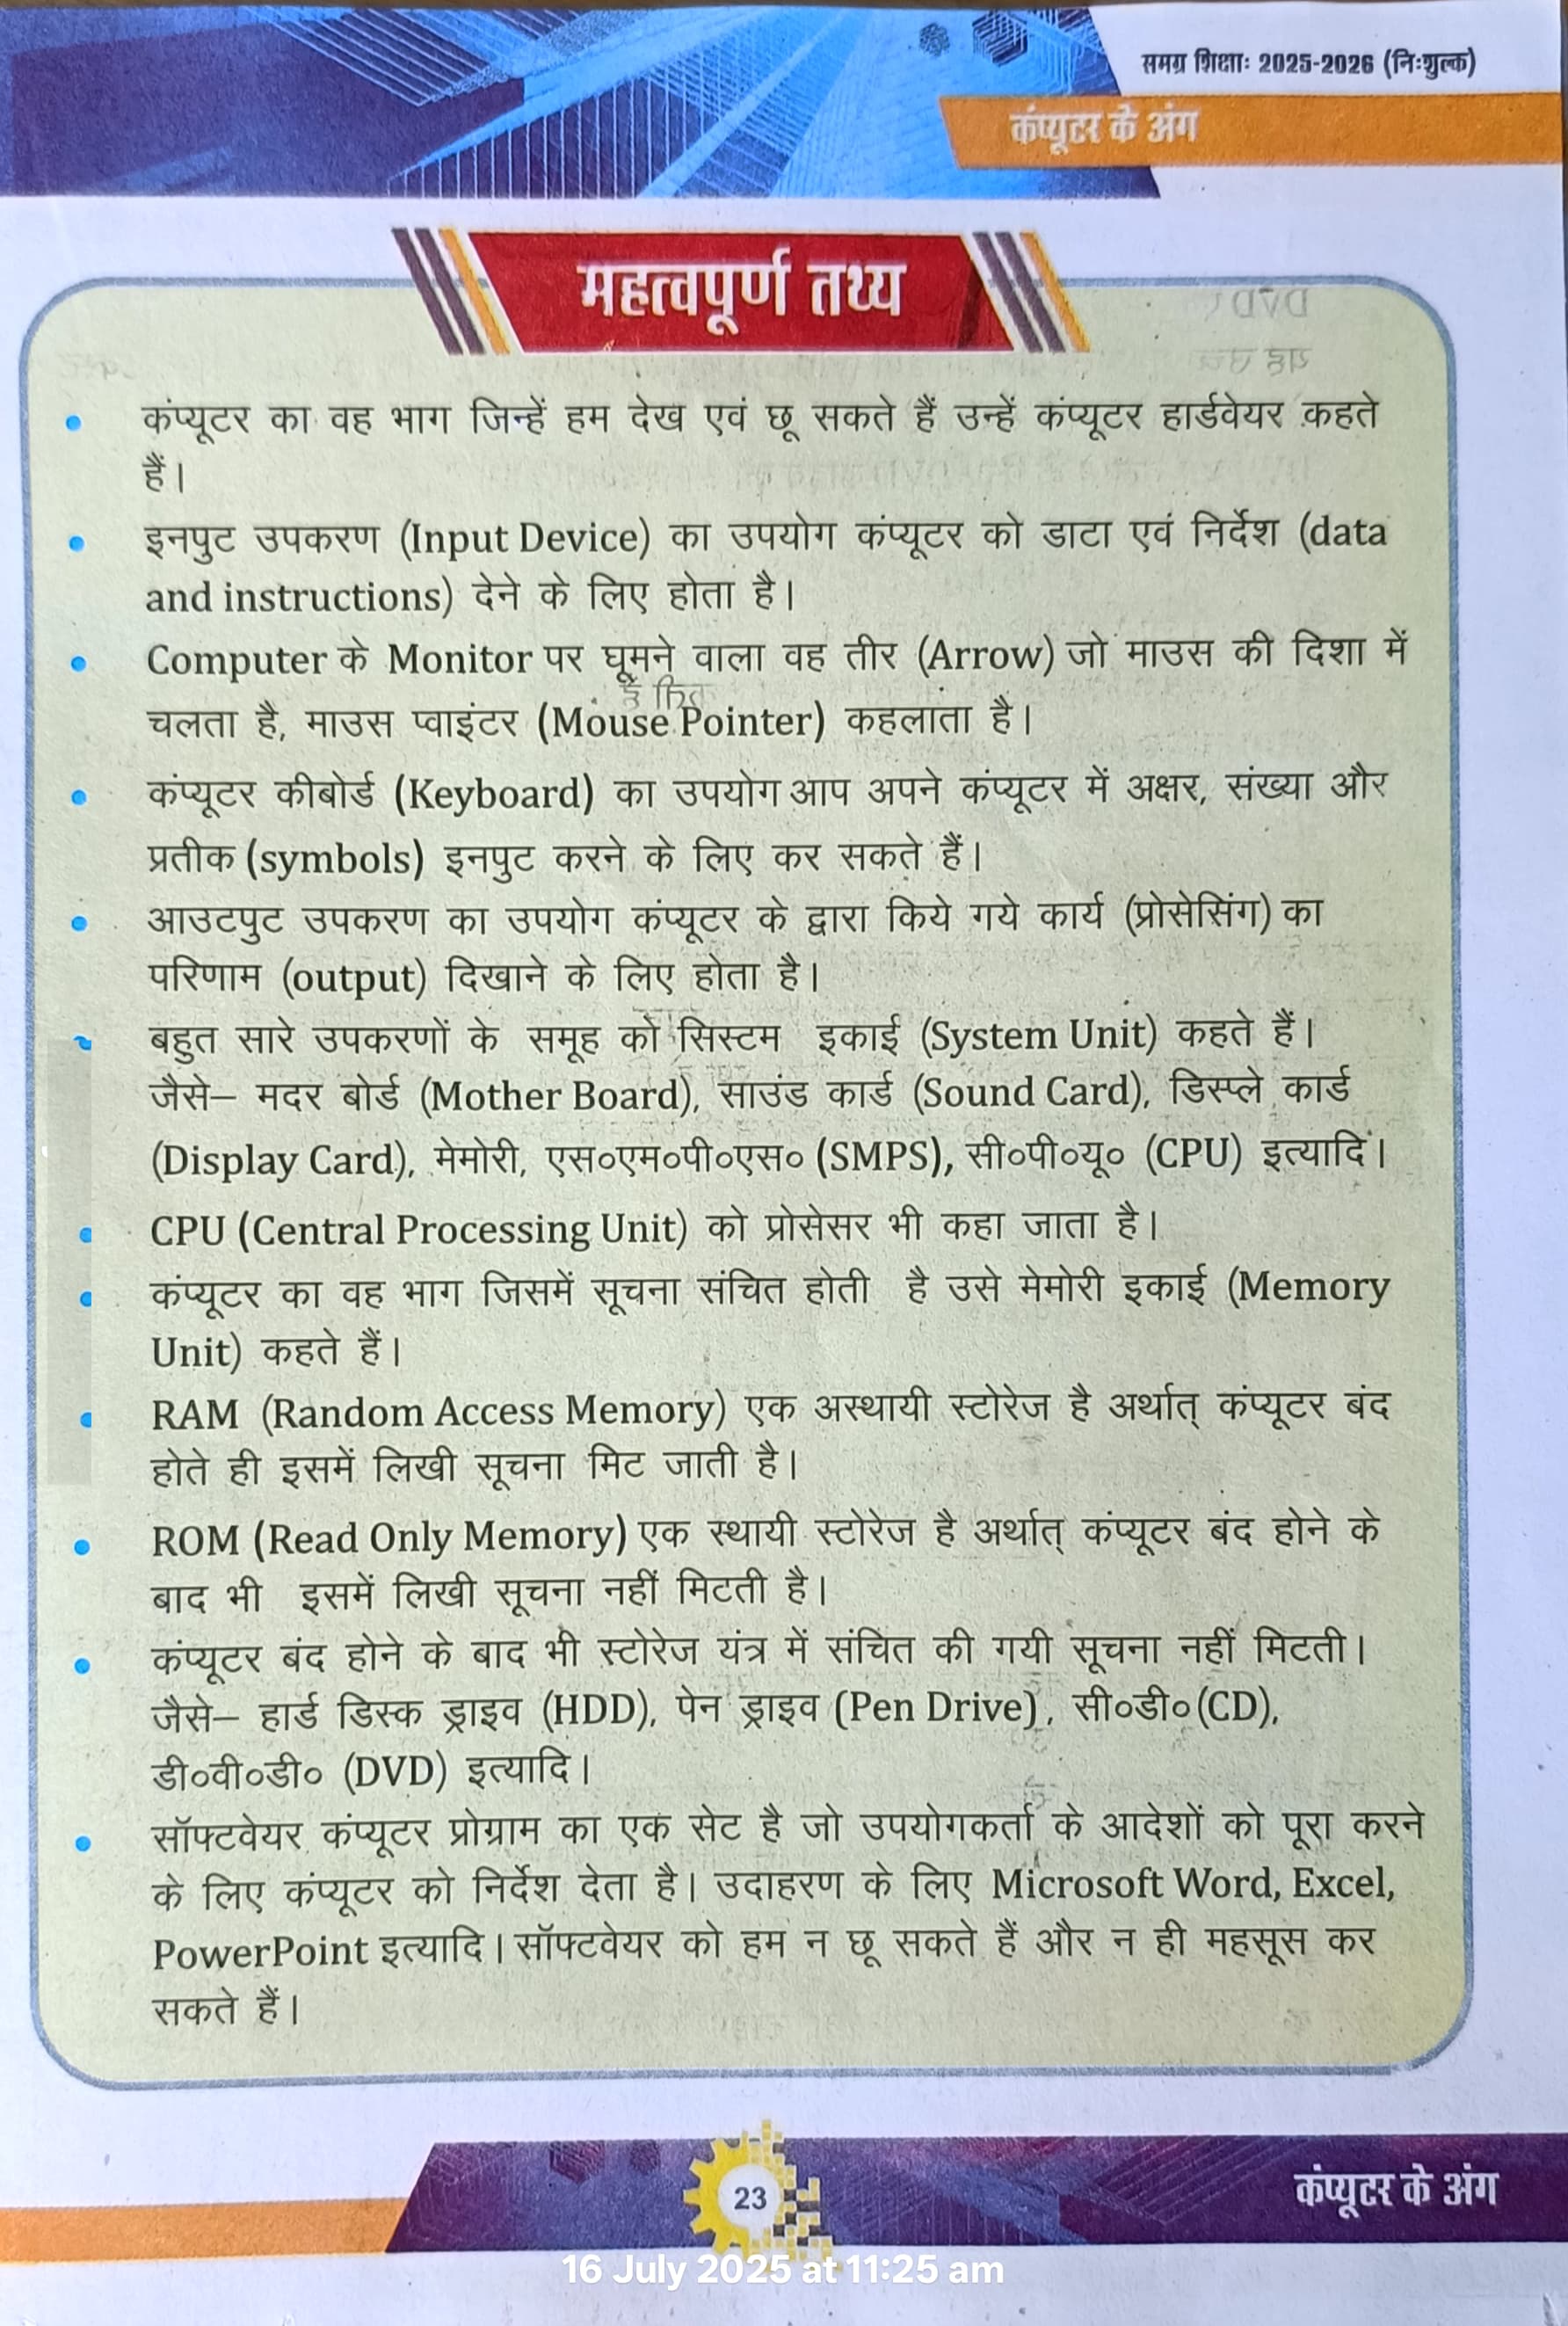 समग्र शिक्षाः 2025-2026 (निःशुल्क)
कंप्यूटर के अंग
महत्वपूर्ण तथ्य
• कंप्यूटर का वह भाग जिन्हें हम देख एवं छू सकते हैं उन्हें कंप्यूटर हार्डवेयर कहते
हैं।
• इनपुट उपकरण (Input Device) का उपयोग कंप्यूटर को डाटा एवं निर्देश (data
and instructions) देने के लिए होता है।
• Computer के Monitor पर घूमने वाला वह तीर (Arrow) जो माउस की दिशा में
चलता है, माउस प्वाइंटर (Mouse Pointer) कहलाता है।
• कंप्यूटर कीबोर्ड (Keyboard) का उपयोग आप अपने कंप्यूटर में अक्षर, संख्या और
प्रतीक (symbols) इनपुट करने के लिए कर सकते हैं।
• आउटपुट उपकरण का उपयोग कंप्यूटर के द्वारा किये गये कार्य (प्रोसेसिंग) का
परिणाम (output) दिखाने के लिए होता है।
• बहुत सारे उपकरणों के समूह को सिस्टम इकाई (System Unit) कहते हैं।
जैसे– मदर बोर्ड (Mother Board), साउंड कार्ड (Sound Card), डिस्प्ले कार्ड
(Display Card), मेमोरी, एस०एम०पी०एस० (SMPS), सी०पी०यू० (CPU) इत्यादि।
• CPU (Central Processing Unit) को प्रोसेसर भी कहा जाता है।
• कंप्यूटर का वह भाग जिसमें सूचना संचित होती है उसे मेमोरी इकाई (Memory
Unit) कहते हैं।
• RAM (Random Access Memory) एक अस्थायी स्टोरेज है अर्थात् कंप्यूटर बंद
होते ही इसमें लिखी सूचना मिट जाती है।
• ROM (Read Only Memory) एक स्थायी स्टोरेज है अर्थात् कंप्यूटर बंद होने के
बाद भी इसमें लिखी सूचना नहीं मिटती है।
• कंप्यूटर बंद होने के बाद भी स्टोरेज यंत्र में संचित की गयी सूचना नहीं मिटती।
जैसे– हार्ड डिस्क ड्राइव (HDD), पेन ड्राइव (Pen Drive), सी०डी० (CD),
डी०वी०डी० (DVD) इत्यादि।
• सॉफ्टवेयर कंप्यूटर प्रोग्राम का एक सेट है जो उपयोगकर्ता के आदेशों को पूरा करने
के लिए कंप्यूटर को निर्देश देता है। उदाहरण के लिए Microsoft Word, Excel,
PowerPoint इत्यादि। सॉफ्टवेयर को हम न छू सकते हैं और न ही महसूस कर
सकते हैं।
23
कंप्यूटर के अंग
16 July 2025 at 11:25 am